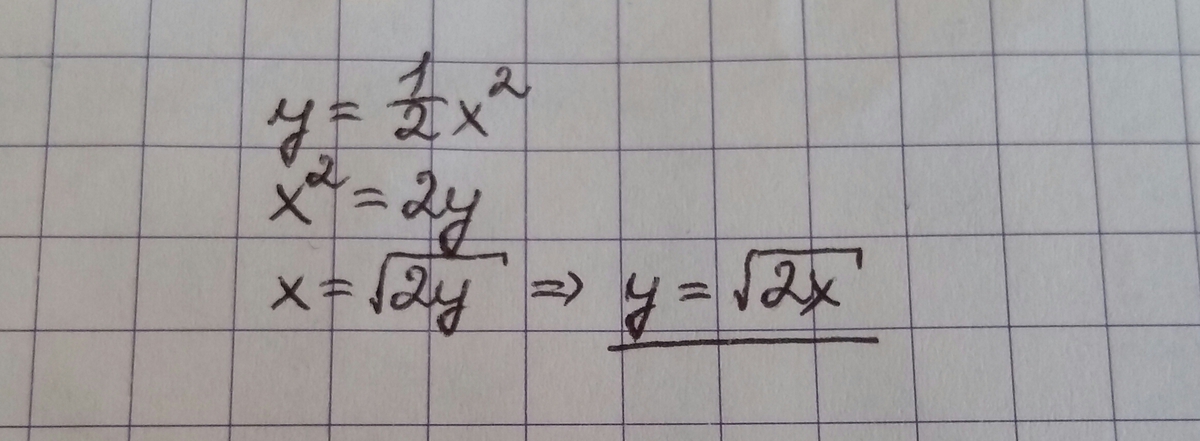 y = 1/2 x²
x² = 2y
x = √2y ⇒ y = √2x